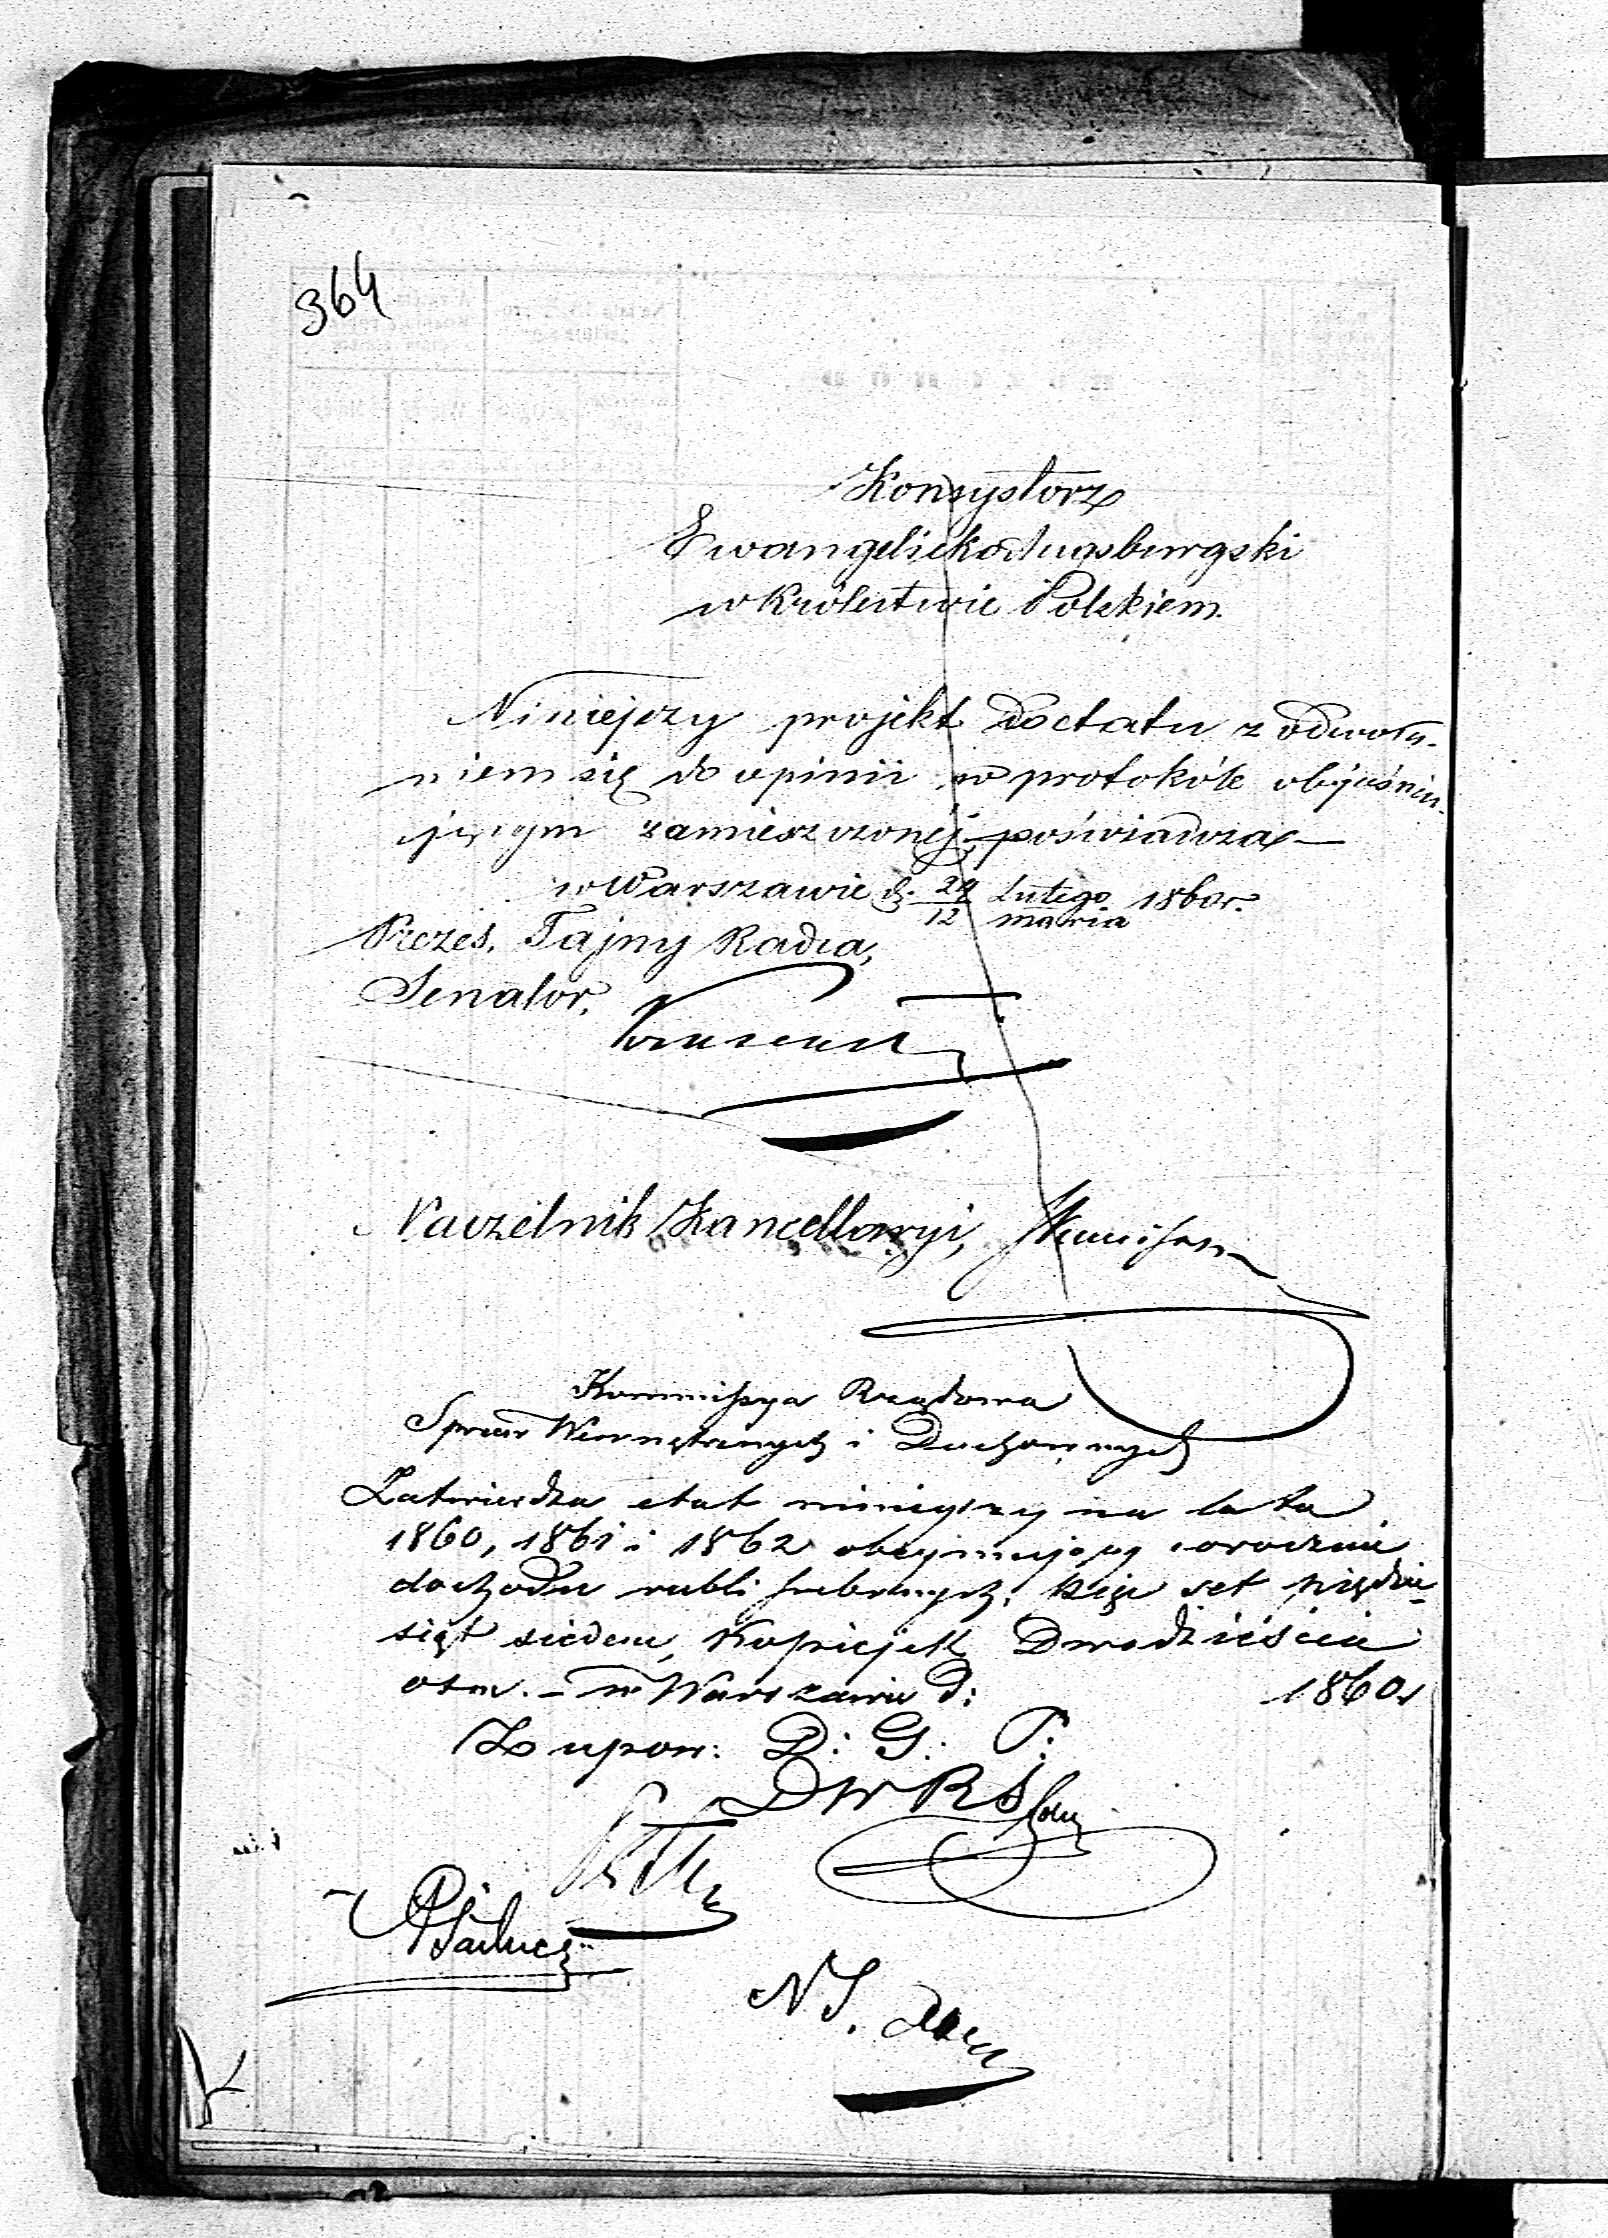 364
Konsystorz
Ewangelicko Augsburgski
w Królestwie Polskiem.
Niniejszy projekt do etatu z odwoła-
niem się do opinii w protokóle objaśnia-
jącym zamieszczonej, poświadcza —
w Warszawie d. 29/12 Lutego/Marca 1860 r.
Prezes, Tajny Radca,
Senator,
Naczelnik Kancellaryi,
Kommissya Rządowa
Spraw Wewnętrznych i Duchownych
Zatwierdza etat niniejszy na lata
1860, 1861 i 1862 obejmujący corocznie
dochodu rubli srebrnych, pięć set pięćdzie-
siąt siedem, kopiejek dwadzieścia
ośm. — w Warszawie d: 1860 r
Z upow: D: G: P:
DWRS
NS.